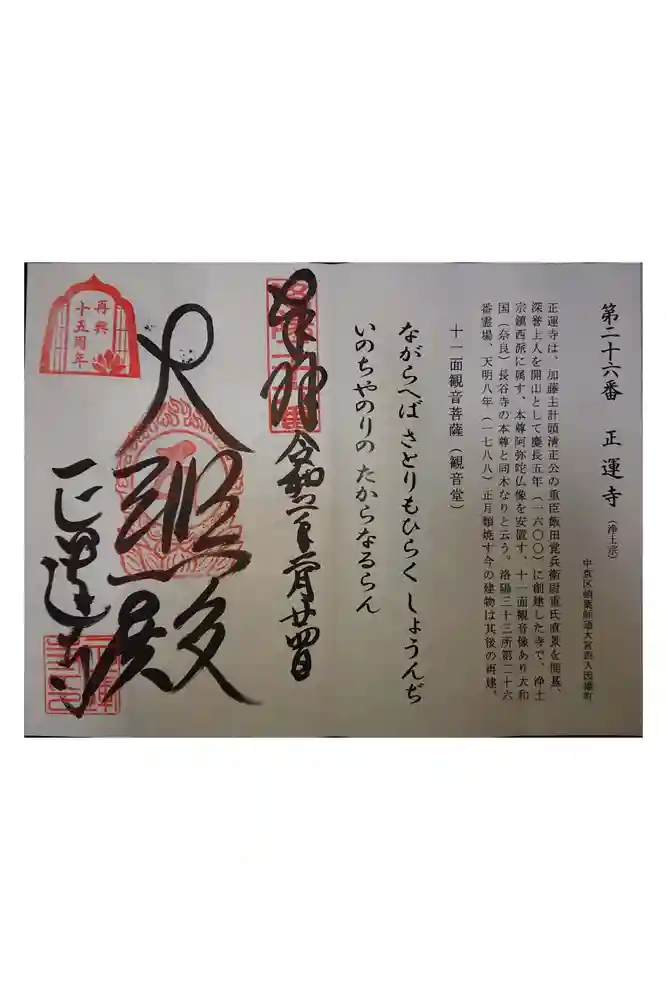 第二十六番 正運寺 (浄土宗)
中京区蛸薬師通大宮西入因幡町
正運寺は、加藤主計頭清正公の重臣飯田覚兵衛尉重氏直景を開基、
深誉上人を開山として慶長五年(一六〇〇)に創建した寺で、浄土
宗鎮西派に属す、本尊阿弥陀仏像を安置す、十一面観音像あり大和
国(奈良)長谷寺の本尊と同木なりと云う。洛陽三十三所第二十六
番霊場、天明八年(一七八八)正月類焼す今の建物は其後の再建。
十一面観音菩薩(観音堂)
ながらへば さとりもひらく しょうんぢ
いのちやのりの たからなるらん
奉拝 令和二年二月廿四日
大悲殿
正運寺
再興
十五周年